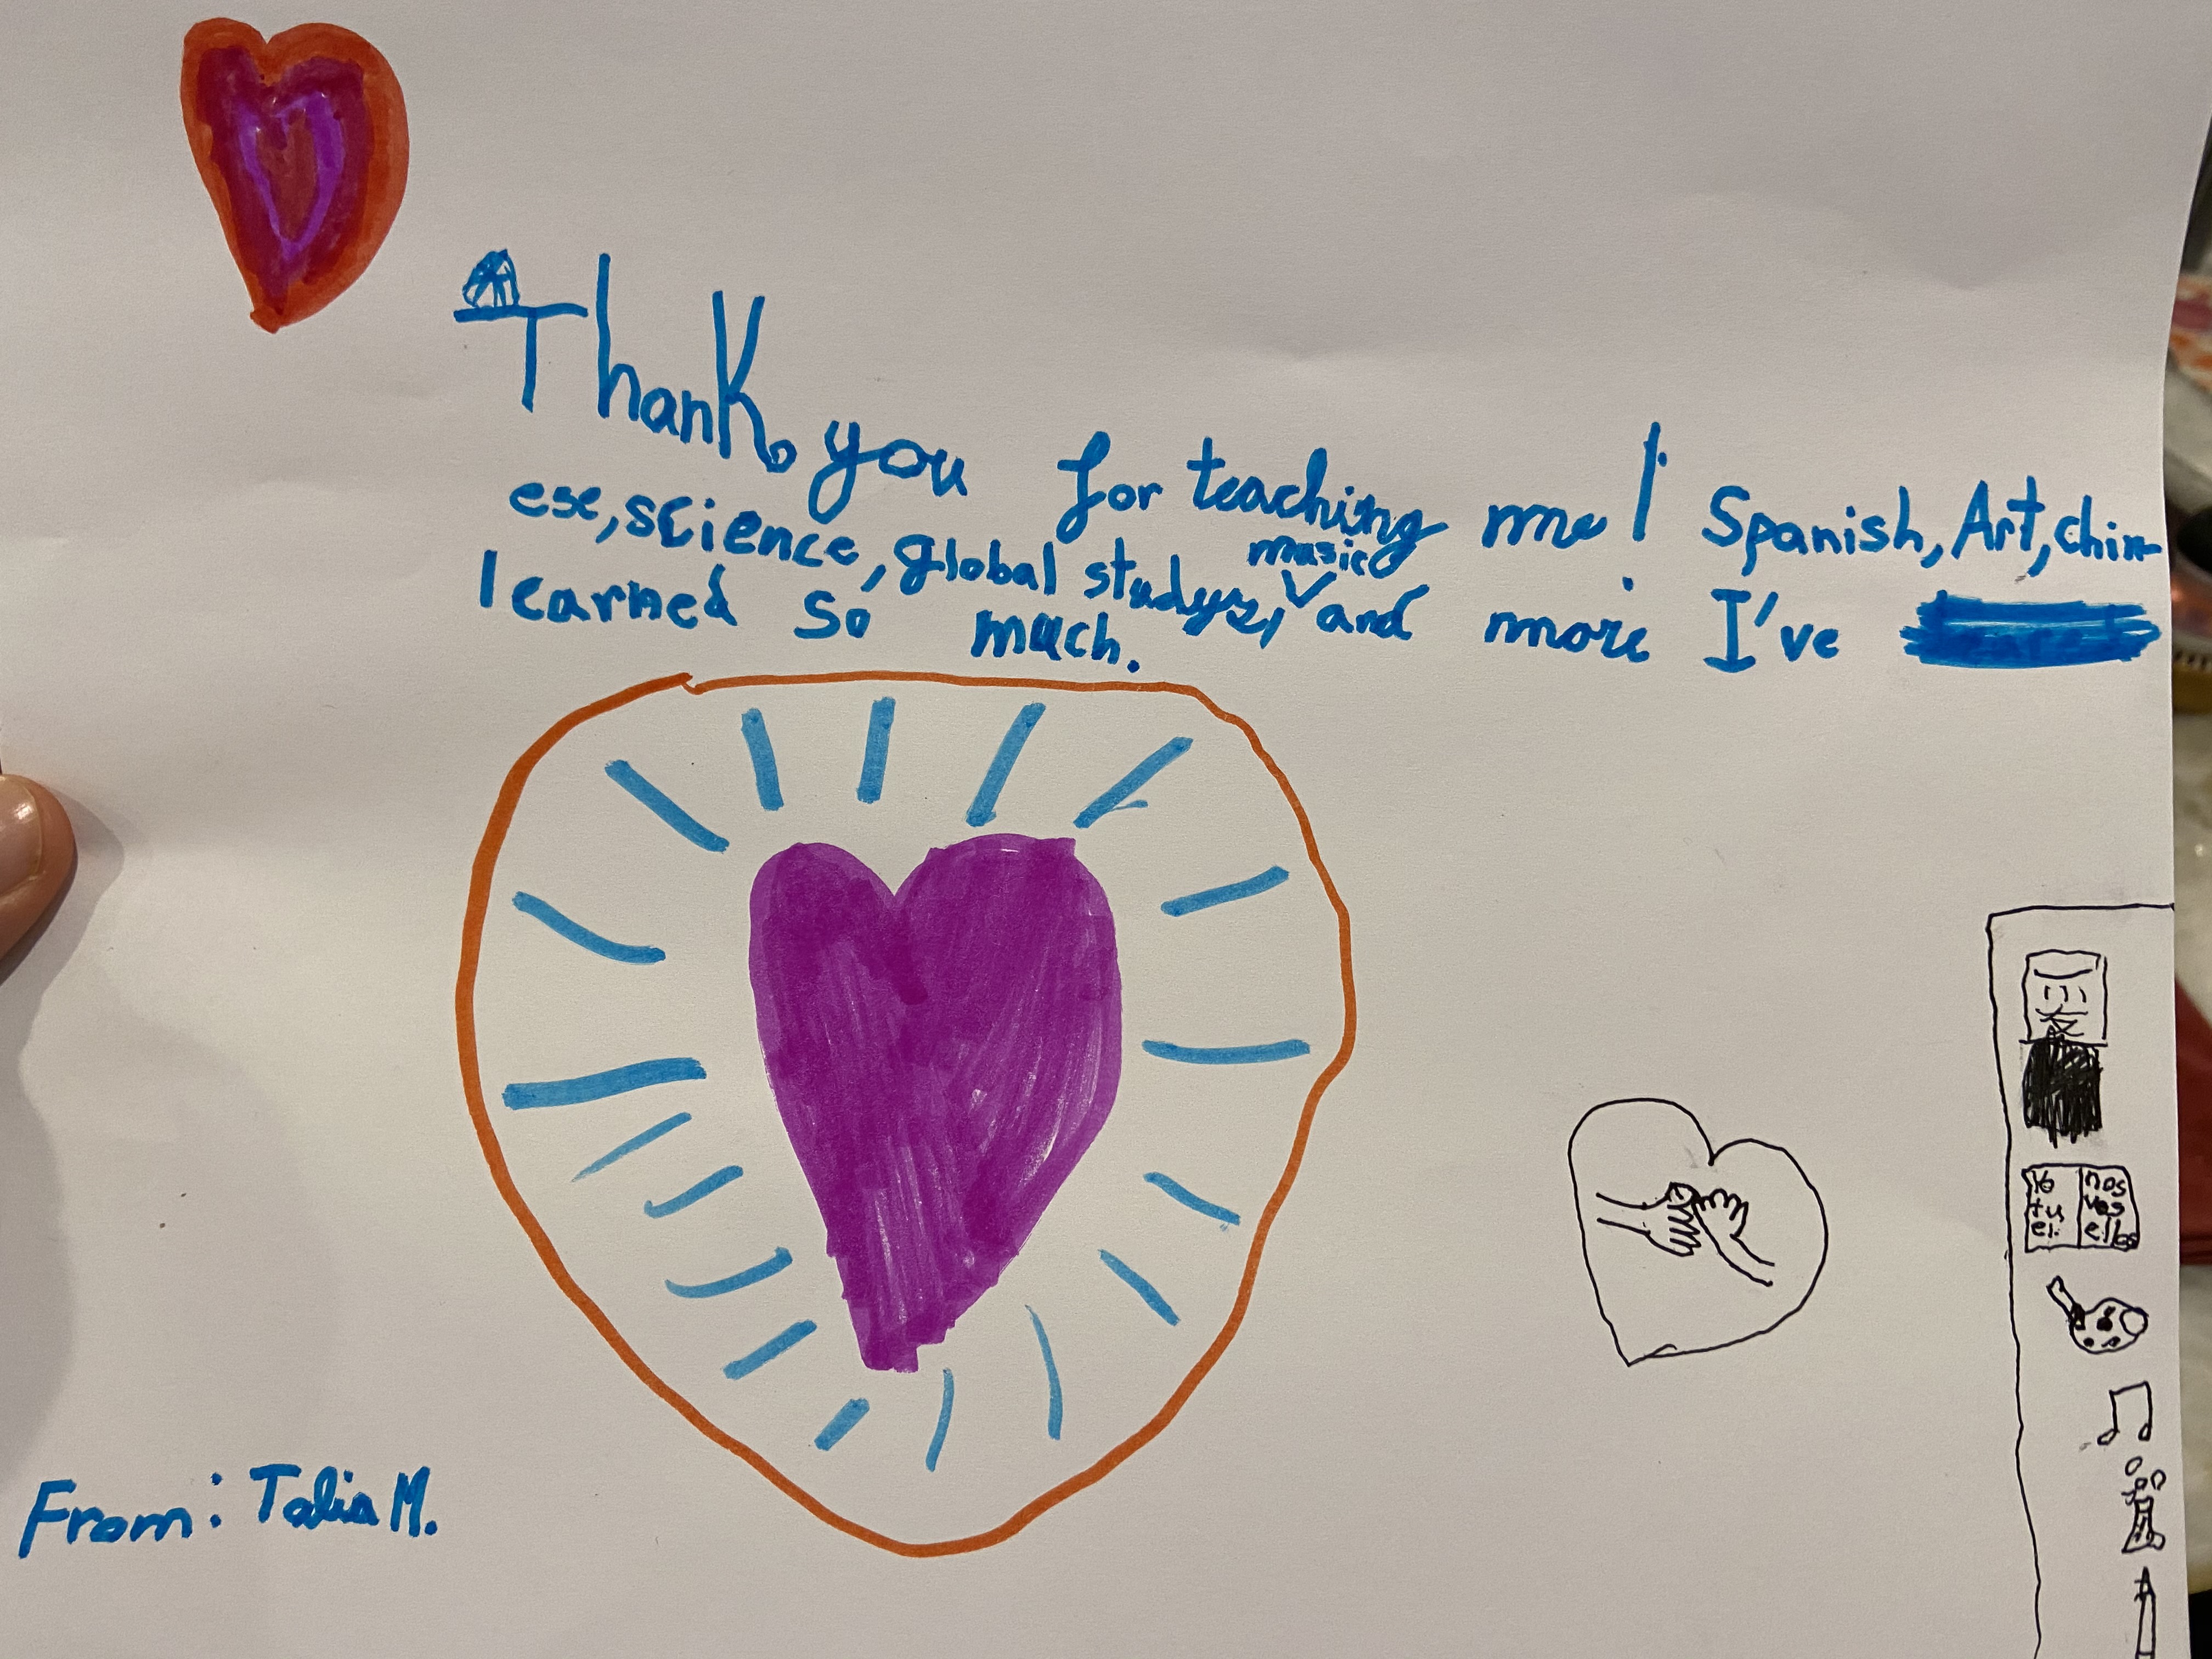 Thank you for teaching me! Spanish, Art, chin-
ese, science, global studys, music and more I've
learned so much.
爱
Yo nos
tu vos
el ellos
From: Talia M.